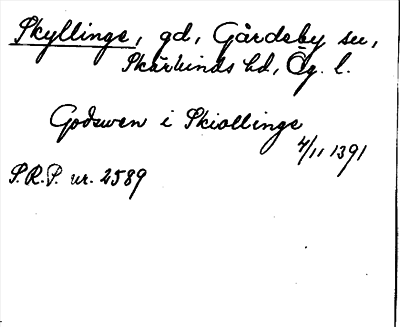 Skyllinge, gd, Gårdeby sn,
Skärkinds hd, Ög. l.
Godswen i Skiollinge
4/11 1391
S.R.P. nr. 2589